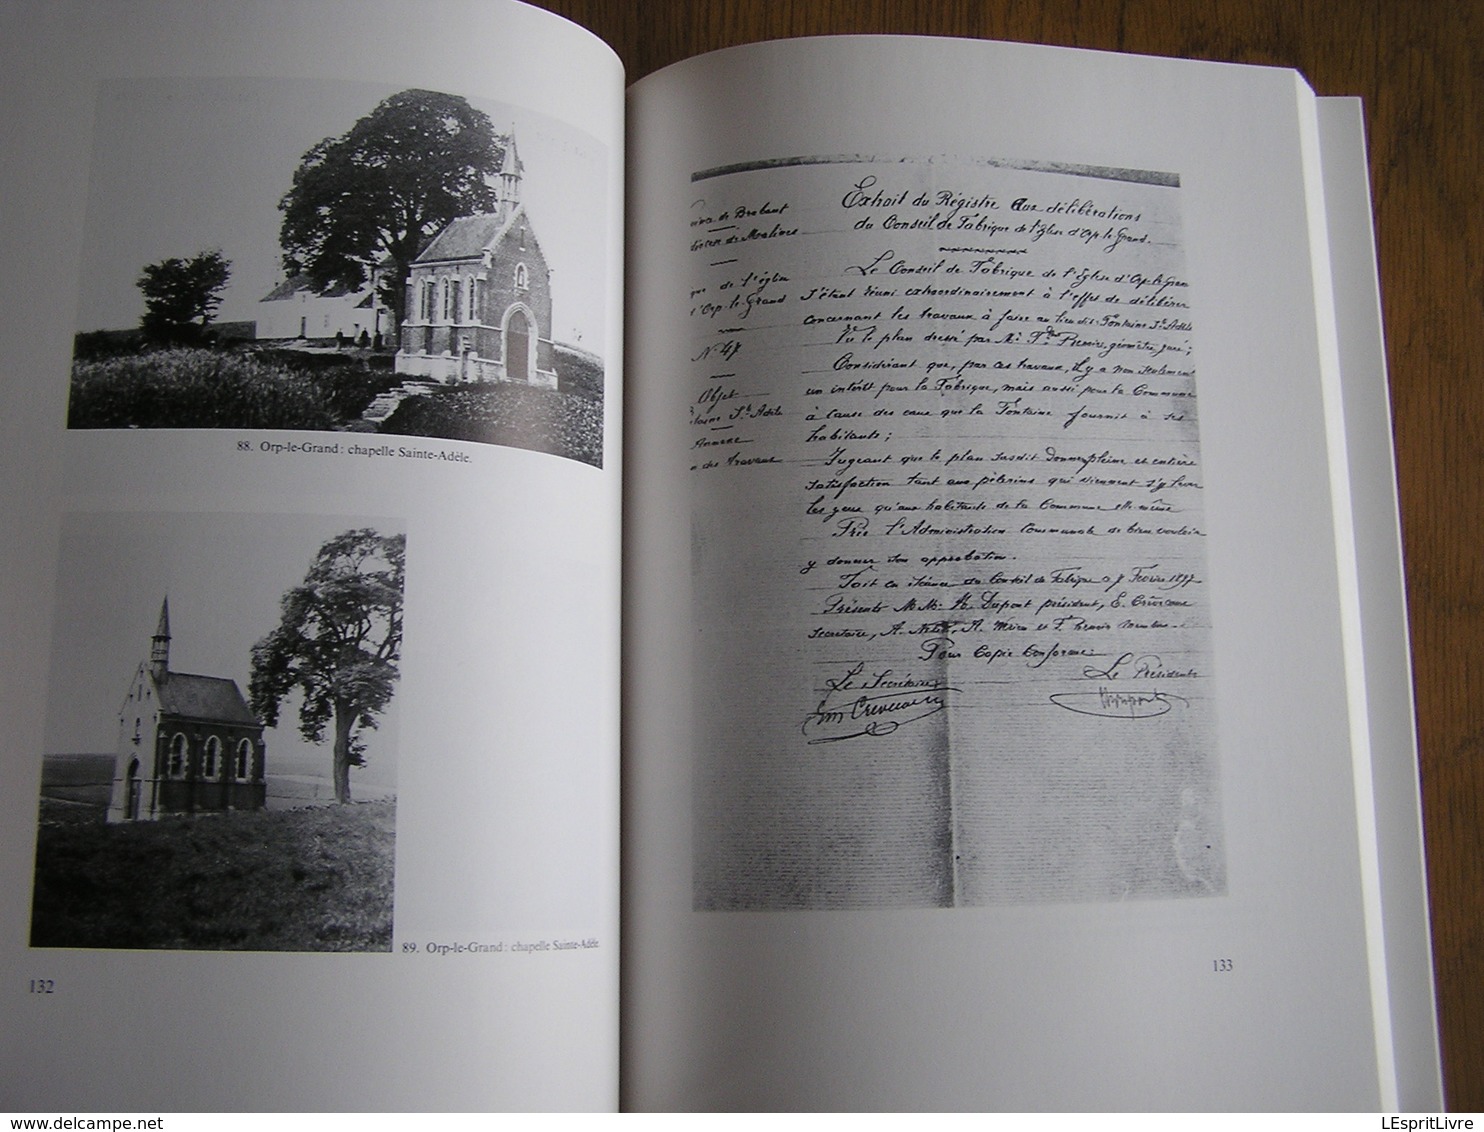 88. Orp-le-Grand: chapelle Sainte-Adèle.
89. Orp-le-Grand: chapelle Sainte-Adèle.
132
de Brabant
de Malines
de l'église
d'Orp-le-Grand
N. 47
Objet
Ste Adèle
Annexe
des travaux
Extrait du Régistre aux délibérations
du Conseil de Fabrique de l'Eglise d'Orp-le-Grand.
Le Conseil de Fabrique de l'Eglise d'Orp-le-Gran
s'étant réuni extraordinairement à l'effet de délibérer
concernant les travaux à faire au lieu dit Fontaine Ste Adèle
Vu le plan dressé par Mr géomètre juré;
Considérant que, par ces travaux, il y a non seulement
un intérêt pour la Fabrique, mais aussi pour la Commune
à cause des eaux que la Fontaine fournit à ses
habitants;
Jugeant que le plan susdit donne pleine et entière
satisfaction tant aux pèlerins qui viennent s'y laver
les yeux qu'aux habitants de la Commune elle-même
Prie l'Administration Communale de bien vouloir
y donner son approbation.
Fait en séance du Conseil de Fabrique 7 Février 1897
Présents M.M. H. Dupont président, E. Crèvecoeur
secrétaire, A. A. et F.
Pour Copie Conforme:
Le Secrétaire Le Président
Em Crèvecoeur HDupont
133
mabrocante.delcampe.net LEspritLivre